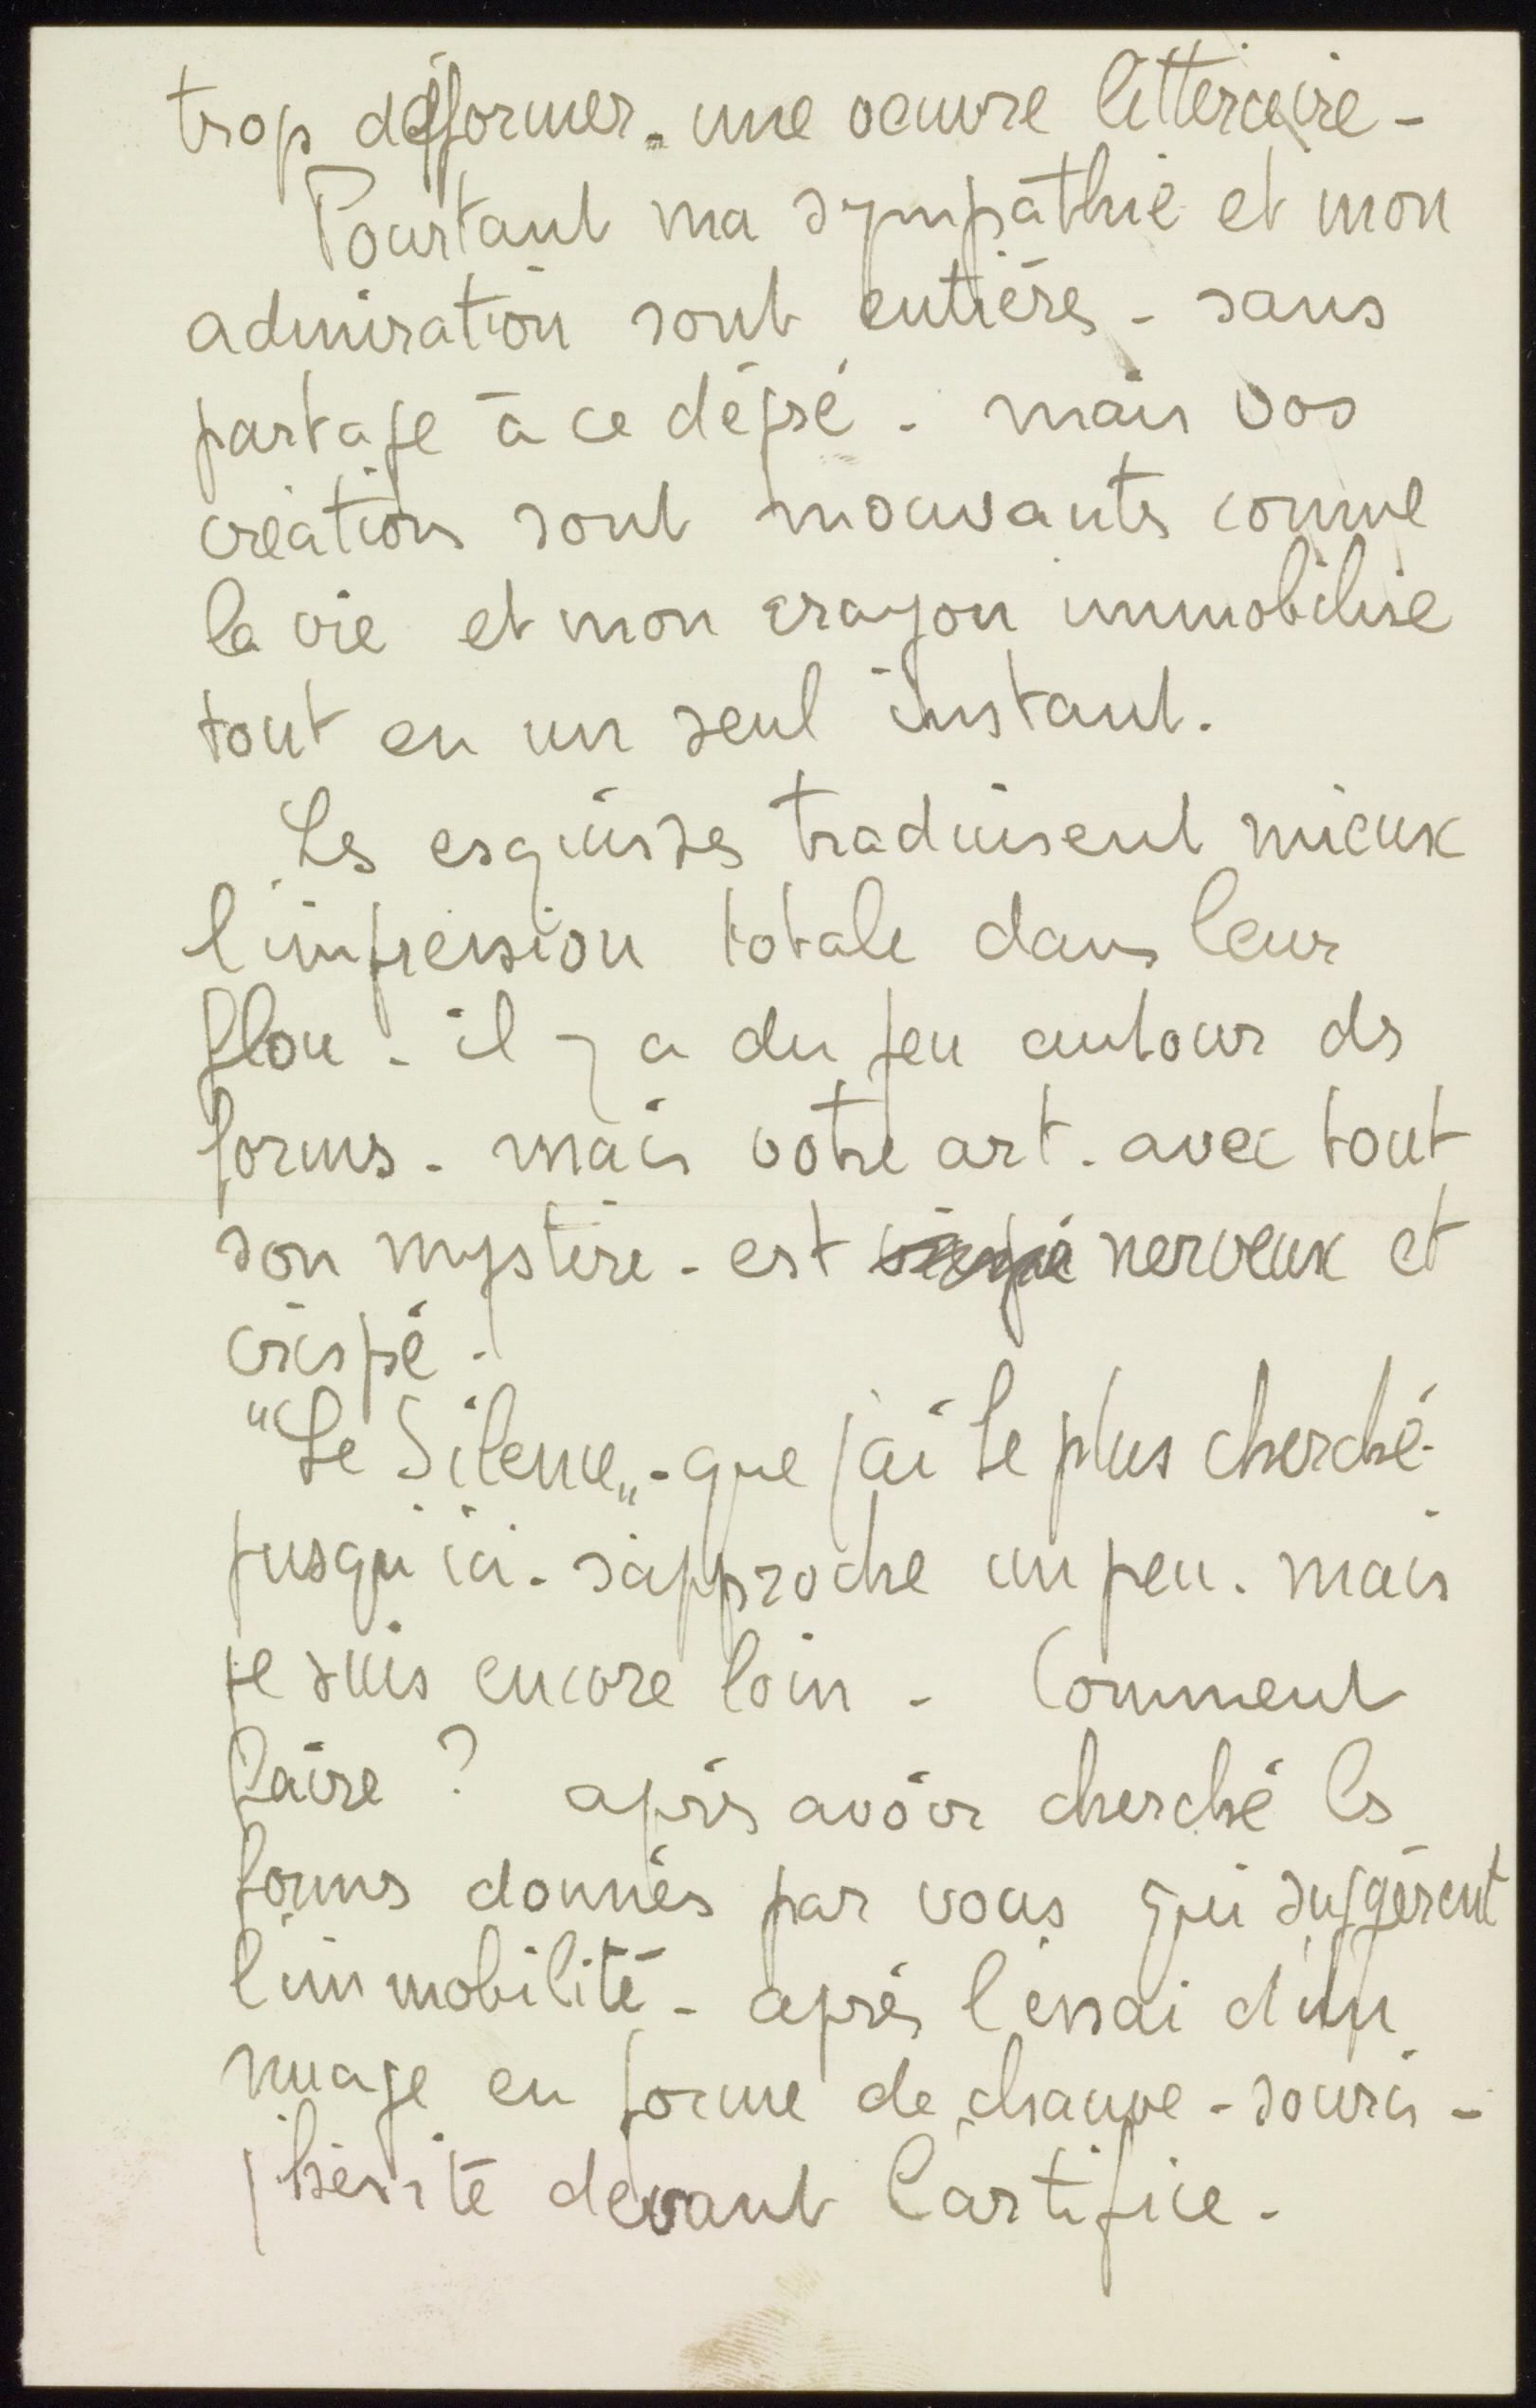 trop déformer. une oeuvre litteraire -
Pourtant ma sympathie et mon
admiration sont entières - sans
partage à ce dégré - mais vos
créations sont mouvantes comme
la vie et mon crayon immobilise
tout en un seul instant.
Les esquisses traduisent mieux
l'impression totale dans leur
flou - il y a du jeu autour des
formes - mais votre art - avec tout
son mystère - est nerveux et
crispé -
"Le Silence„ - que j'ai le plus cherché -
jusqu'ici - s'approche un peu - mais
je suis encore loin - Comment
faire ? après avoir cherché les
formes donnés par vous qui suggèrent
l'immobilité - après l'essai d'un
nuage en forme de chauve - souris -
j'hésite devant l'artifice -